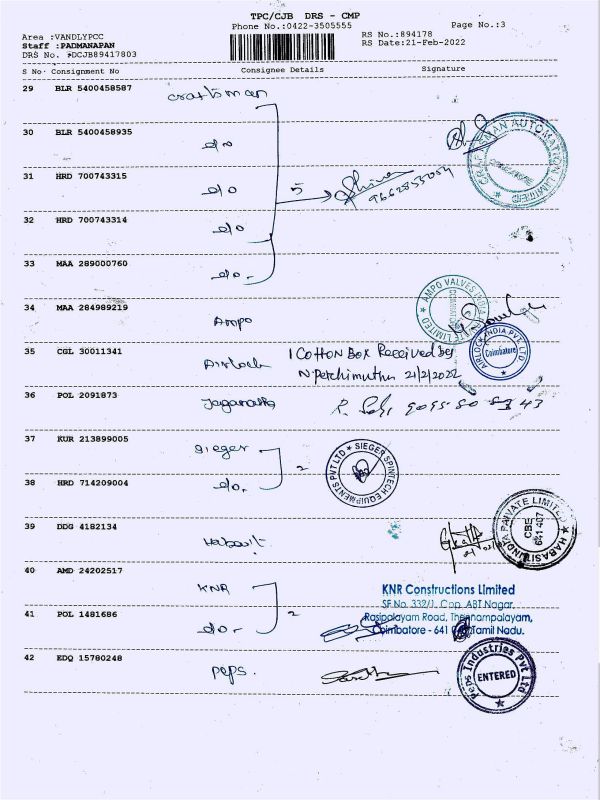 TPC/CJB DRS - CMP
Phone No.:0422-3505555
Page No.:3
Area :VANDLYPCC
RS No.:894178
Staff :PADMANAPAN
RS Date:21-Feb-2022
DRS No. :DCJB89417803
S No· Consignment No Consignee Details Signature
29 BLR 5400458587 craftsman
30 BLR 5400458935 do
CRAFTSMAN AUTOMATION LIMITED
31 HRD 700743315 do 5
32 HRD 700743314 do
33 MAA 289000760 do
34 MAA 284989219 Ampo
AMPO VALVES INDIA PRIVATE LIMITED
35 CGL 30011341 Airlock 1 Cotton Box Received by
N. Petchimuthu 21/2/2022
AIRLOCK INDIA PVT. LTD
Coimbatore
36 POL 2091873
37 KUR 213899005 Sieger
2
SIEGER SPINTECH EQUIPMENTS PVT LTD
38 HRD 714209004 do
39 DDG 4182134 Habasit
HABASIT INDIA PRIVATE LIMITED
CBE
641 407
40 AMD 24202517 KNR
2
KNR Constructions Limited
SF.No. 332/1, Opp. ABT Nagar,
Rasipalayam Road, Thennampalayam,
Coimbatore - 641 Tamil Nadu.
41 POL 1481686 do
42 EDQ 15780248 peps.
Peps Industries Pvt Ltd
ENTERED